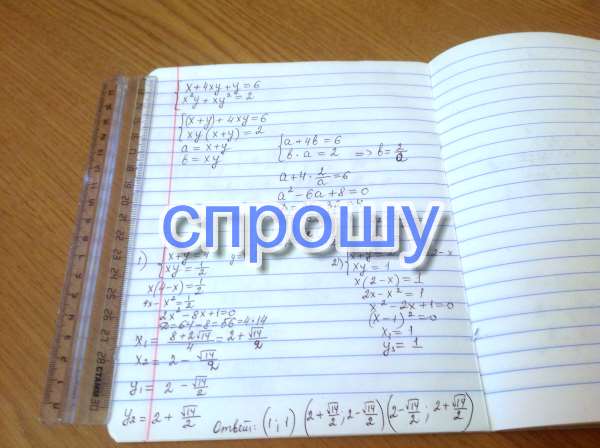 x + 4xy + y = 6
x²y + xy² = 2
(x+y) + 4xy = 6
xy(x+y) = 2
a = x+y
b = xy
a + 4b = 6
b · a = 2 => b = 2/a
a + 4 · 2/a = 6
a² - 6a + 8 = 0
спрошу
1) x + y = 4
xy = 1/2
x(4-x) = 1/2
4x - x² = 1/2
2x² - 8x + 1 = 0
D = 64 - 8 = 56 = 4·14
x₁ = (8 + 2√14)/4 = 2 + √14/2
x₂ = 2 - √14/2
y₁ = 2 - √14/2
y₂ = 2 + √14/2
2)
xy = 1
x(2-x) = 1
2x - x² = 1
x² - 2x + 1 = 0
(x-1)² = 0
x₃ = 1
y₃ = 1
Ответ: (1; 1) (2 + √14/2; 2 - √14/2) (2 - √14/2; 2 + √14/2)